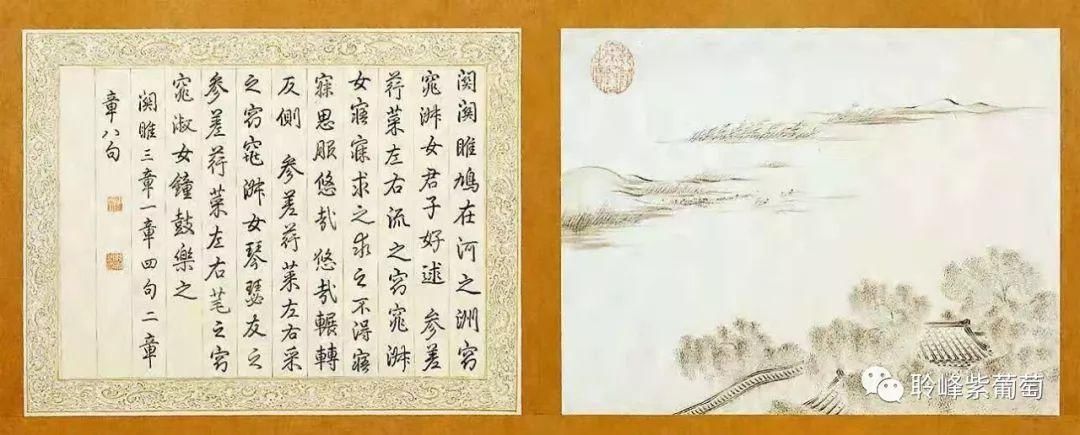 關關雎鳩在河之洲窈
窕淑女君子好逑 參差
荇菜左右流之窈窕淑
女寤寐求之求之不得寤
寐思服悠哉悠哉輾轉
反側 參差荇菜左右采
之窈窕淑女琴瑟友之
參差荇菜左右芼之窈
窕淑女鐘鼓樂之
關雎三章一章四句二章
章八句
聆峰紫葡萄